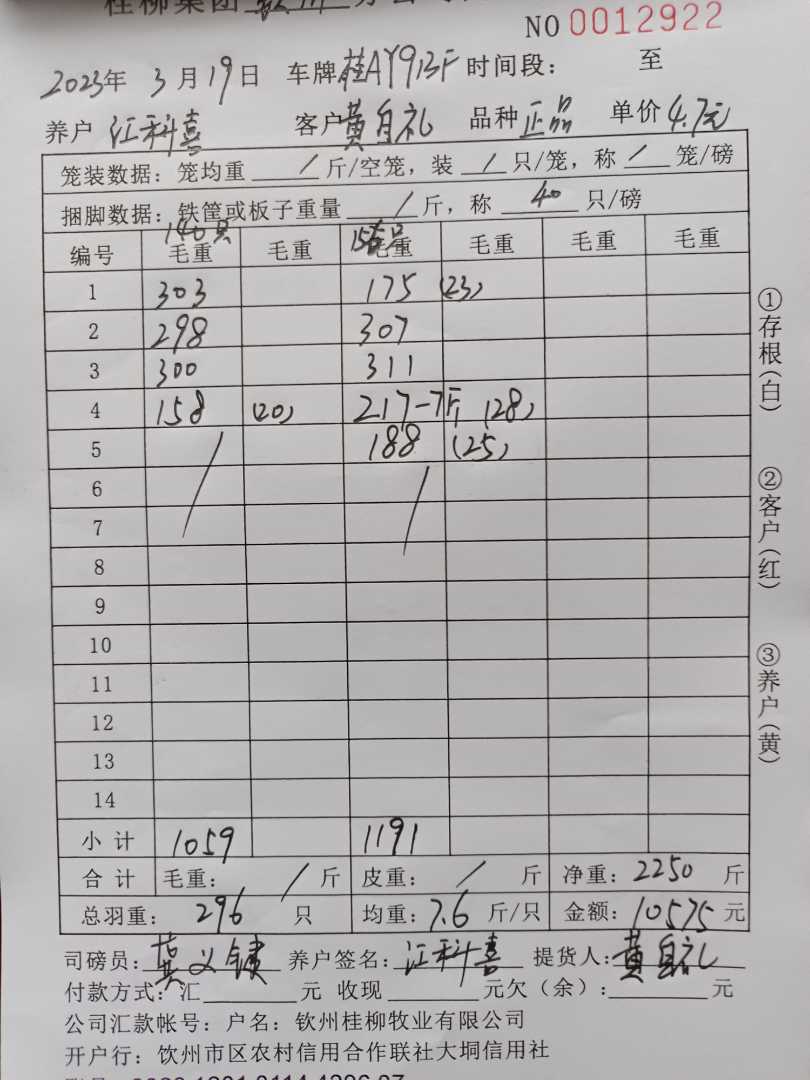 桂柳集团
NO 0012922
2023年 3月19日 车牌桂AY91BF 时间段: 至
养户 江科喜 客户黄自礼 品种正品 单价4.7元
笼装数据: 笼均重 / 斤/空笼, 装 / 只/笼, 称 / 笼/磅
捆脚数据: 铁筐或板子重量 / 斤, 称 40 只/磅
140只
编号 毛重 毛重 毛重 毛重 毛重 毛重
1 303 175 (23)
2 298 307
3 300 311
4 158 (20) 217-7斤 (28)
5 188 (25)
6
7
8
9
10
11
12
13
14
小计 1059 1191
合计 毛重: / 斤 皮重: / 斤 净重: 2250 斤
总羽重: 296 只 均重: 7.6 斤/只 金额: 10575 元
司磅员: 莫义键 养户签名: 江科喜 提货人: 黄自礼
付款方式: 汇 元 收现 元欠(余): 元
公司汇款帐号: 户名: 钦州桂柳牧业有限公司
开户行: 饮州市区农村信用合作联社大垌信用社
①存根(白)
②客户(红)
③养户(黄)